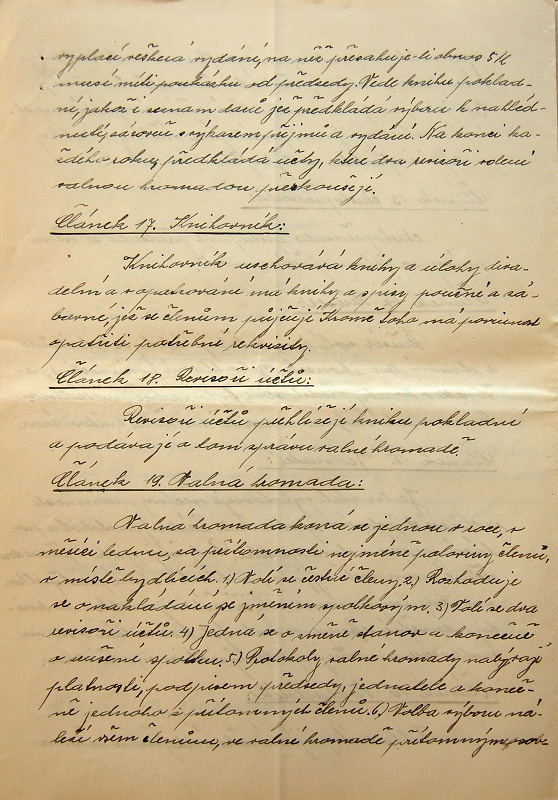 vyplácí veškerá vydání, na něž přesahuje-li obnos 5 K
musí míti poukázku od předsedy. Vede knihu poklad-
ní, jakož i seznam darů jež předkládá výboru k nahléd-
nutí, zároveň s výkazem příjmů a vydání. Na konci ka-
ždého roku, předkládá účty, které dva revisoři volení
valnou hromadou přezkoušejí.
Článek 17. Knihovník:
Knihovník uschovává knihy a úlohy diva-
delní a v opatrování má knihy a spisy poučné a zá-
bavné, jež se členům půjčují. Kromě toho má povinnost
opatřiti potřebné rekvisity.
Článek 18. Revisoři účtů:
Revisoři účtů přihlížejí knihu pokladní
a podávají o tom správu valné hromadě.
Článek 19. Valná hromada:
Valná hromada koná se jednou v roce, v
měsíci lednu, za přítomnosti nejméně poloviny členů,
v místě bydlících. 1) Volí se čestné členy. 2) Rozhoduje
se o nakládání se jměním spolkovým. 3) Volí se dva
revisoři účtů. 4) Jedná se o změně stanov a konečně
o zrušení spolku. 5) Protokoly valné hromady nabývají
platnosti, podpisem předsedy, jednatele a koneč-
ně jednoho z přítomných členů. 6) Volba výboru ná-
leží všem členům, ve valné hromadě přítomným, osob-